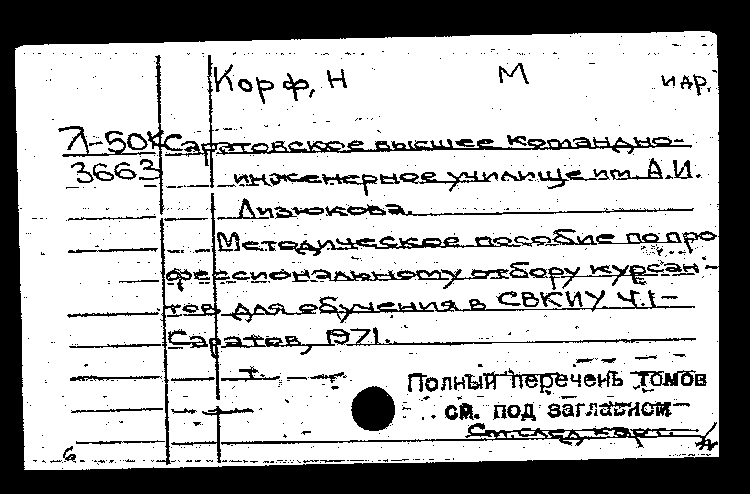 Корф, Н М и др.
Л-50К Саратовское высшее командно-
3663 инженерное училище им. А.И.
Лизюкова.
Методическое пособие по про
фессиональному отбору курсан-
тов для обучения в СВКИУ Ч.1-
Саратов, 1971.
т.
Полный перечень томов
см. под заглавном
См. след. карт.
6